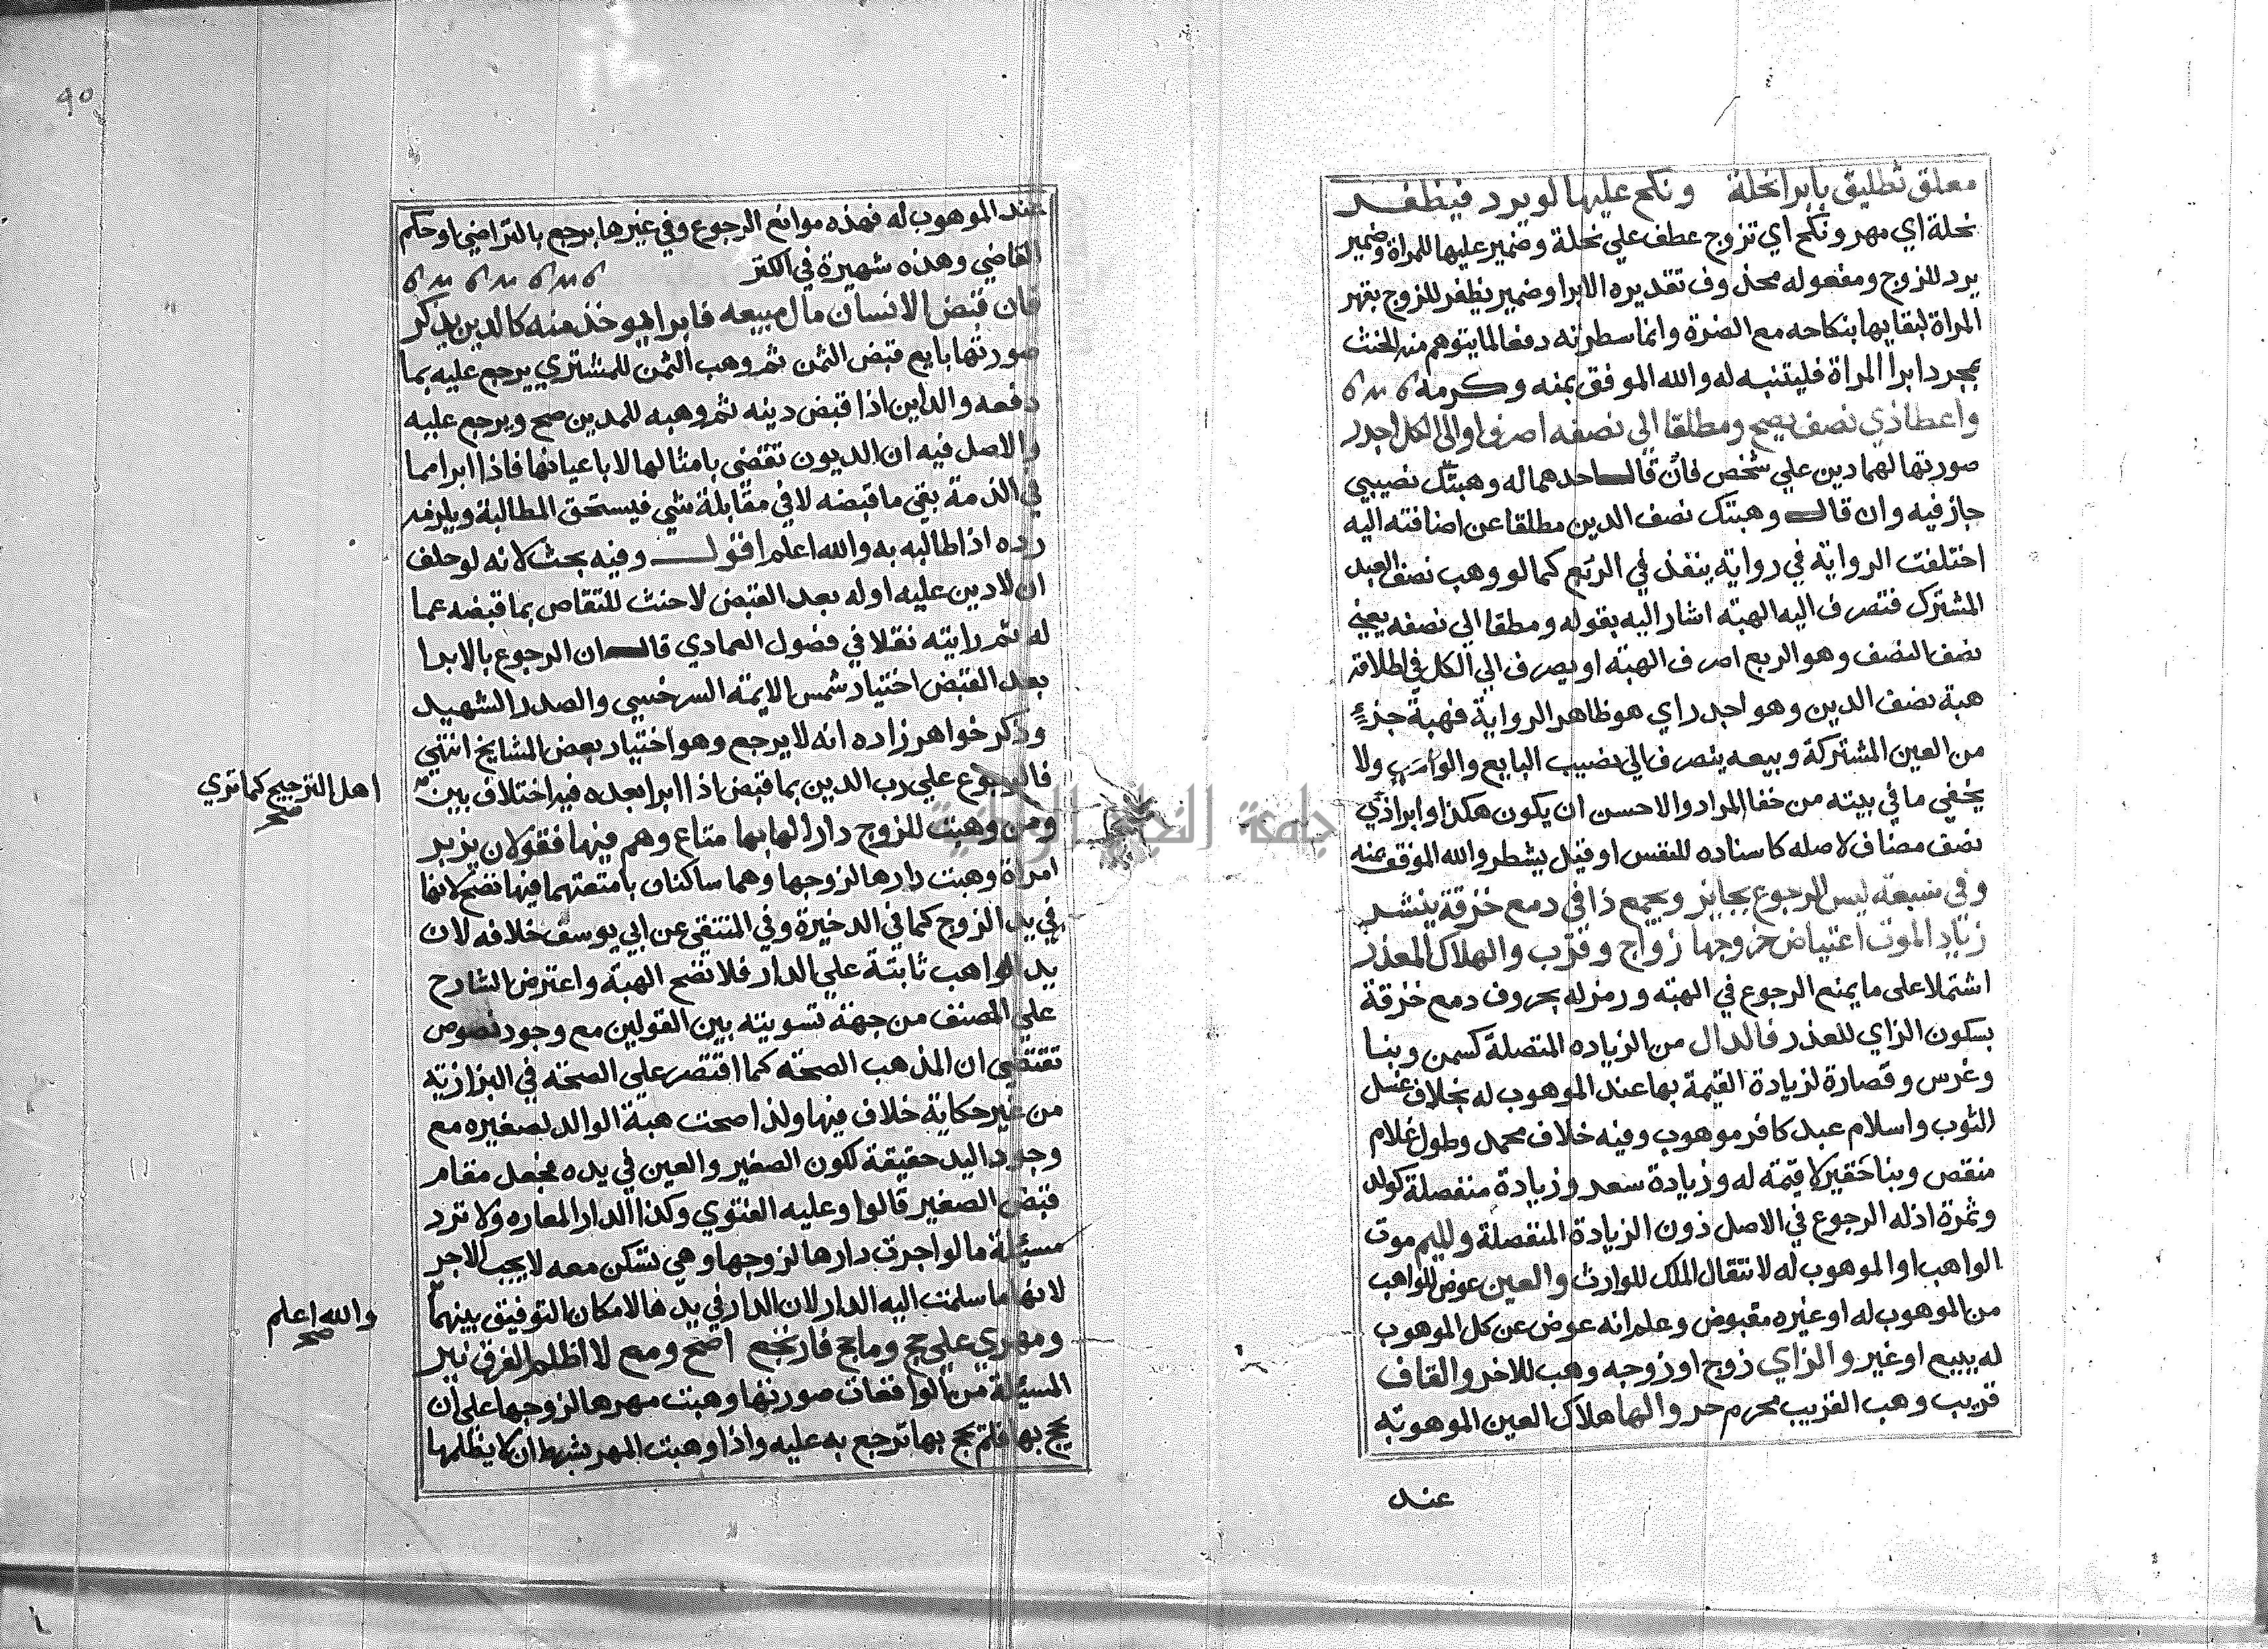 معلق تطليق بابرا نحلة ونكح عليها لو يرد فيظفر
نحلة اي مهر ونكح اي تزوج عطف علي نحلة وضمير عليها للمراة وضمير
يرد للزوج ومفعوله محذوف تقديره الابرا وضمير يظفر للزوج بقهر
المراة لبقايها بنكاحه مع الضرة وانما سطرته دفعا لما يتوهم منه الحنث
بمجرد ابرا المراة فليتنبه له والله الموفق بمنه وكرمه
واعطا ذي نصف يصح ومطلقا الي نصفه اصرفوا والي الكل اجدر
صورتها لهما دين علي شخص فان قال احدهما له وهبتك نصيبي
جاز فيه وان قال وهبتك نصف الدين مطلقا عن اضافته اليه
اختلفت الرواية في رواية ينفذ في الربع كما لو وهب نصف العبد
المشترك فتصرف اليه الهبة اشار اليه بقوله ومطلقا الي نصفه يعني
نصف النصف وهو الربع اصرف الهبة او يصرف الي الكل في اطلاقه
هبة نصف الدين وهو اجدر اي هو ظاهر الرواية فهبة جزء
من العين المشتركة وبيعه يتصرف الي نصيب البايع والواهب ولا
يخفي ما في بيته من خفا المراد والاحسن ان يكون هكذا وابرا ذي
نصف مضاف لاصله كاسناده للنفس او قيل يشطر والله الموفق بمنه
وفي سبعة ليس الرجوع بجايز ويجمع ذا في دمع خزقة ينشر
زياد الموت اعتياض خروجها زواج وقرب والهلاك المعذر
اشتملا علي ما يمنع الرجوع في الهبة ورمز له بحروف دمع خزقة
بسكون الزاي للعذر فالدال من الزياده المتصلة كسمن وبنا
وغرس وقصارة لزيادة القيمة بها عند الموهوب له بخلاف غسل
الثوب واسلام عبد كافر موهوب وفيه خلاف محمد وطول غلام
منقص وبنا حقير لا قيمة له وزيادة سعر وزيادة منفصلة كولد
وثمرة اذ له الرجوع في الاصل دون الزيادة المنفصلة والميم موت
الواهب او الموهوب له لانتقال الملك للوارث والعين عوض للواهب
من الموهوب له او غيره مقبوض وعلم انه عوض عن كل الموهوب
له ببيع او غير والزاي زوج او زوجه وهب للاخر والقاف
قريب وهب القريب محرم حر والها هلاك العين الموهوبة
عند
عند الموهوب له فهذه موانع الرجوع وفي غيرها يرجع بالتراضي او حكم
القاضي وهذه شهيرة في الكتر
فان قبض الانسان مال مبيعه فابرا لمو خذ منه كالدين يذكر
صورتها بايع قبض الثمن ثم وهب الثمن للمشتري يرجع عليه بما
دفعه والداين اذا قبض دينه ثم وهبه للمدين صح ويرجع عليه
والاصل فيه ان الديون تقضي بامثالها لا باعيانها فاذا ابرا مما
في الذمة بقي ما قبضه لا في مقابلة شي فيستحق المطالبة ويلزمه
رده اذا طالبه به والله اعلم اقول وفيه بحث لانه لو حلف
ان لا دين عليه او له بعد القبض لا حنث للتقاص بما قبضه عما
له ثم رايته نقلا في فصول العمادي قال ان الرجوع بالابرا
بعد القبض اختيار شمس الايمة السرخسي والصدر الشهيد
وذكر خواهر زاده انه لا يرجع وهو اختيار بعض المشايخ انتهي
فالرجوع علي رب الدين بما قبض اذا ابرا بعده فيه اختلاف بين
اهل الترجيح كما تري
صح
ومن وهبت للزوج دارا لها بها متاع وهم فيها فقولان يزبر
امراة وهبت دارها لزوجها وهما ساكنان بامتعتهما فيها تصح لانها
في يد الزوج كما في الذخيرة وفي المنتقي عن ابي يوسف خلافه لان
يد الواهب ثابتة علي الدار فلا تصح الهبة واعترض الشارح
علي المصنف من جهة تسويته بين القولين مع وجود نصوص
تقتضي ان المذهب الصحة كما اقتصر علي الصحة في البزازية
من غير حكاية خلاف فيها ولذا صحت هبة الوالد لصغيره مع
وجود اليد حقيقة لكون الصغير والعين في يده فجعل مقام
قبض الصغير قالوا وعليه الفتوي وكذا الدار المعاره ولا ترد
مسئلة ما لو اجرت دارها لزوجها وهي تسكن معه لا يجب الاجر
لانها ما سلمت اليه الدار لان الدار في يدها لامكان التوفيق بينهما
والله اعلم
صح
ومهري علي حج وما حج فارتجع اصح ومع لا اظلم الفرق نير
المسئلة من الواقعات صورتها وهبت مهرها لزوجها علي ان
يحج بها فلم يحج بها ترجع به عليه واذا وهبت المهر بشرط ان لا يظلمها
٩٥
جامعة النجاح الوطنية